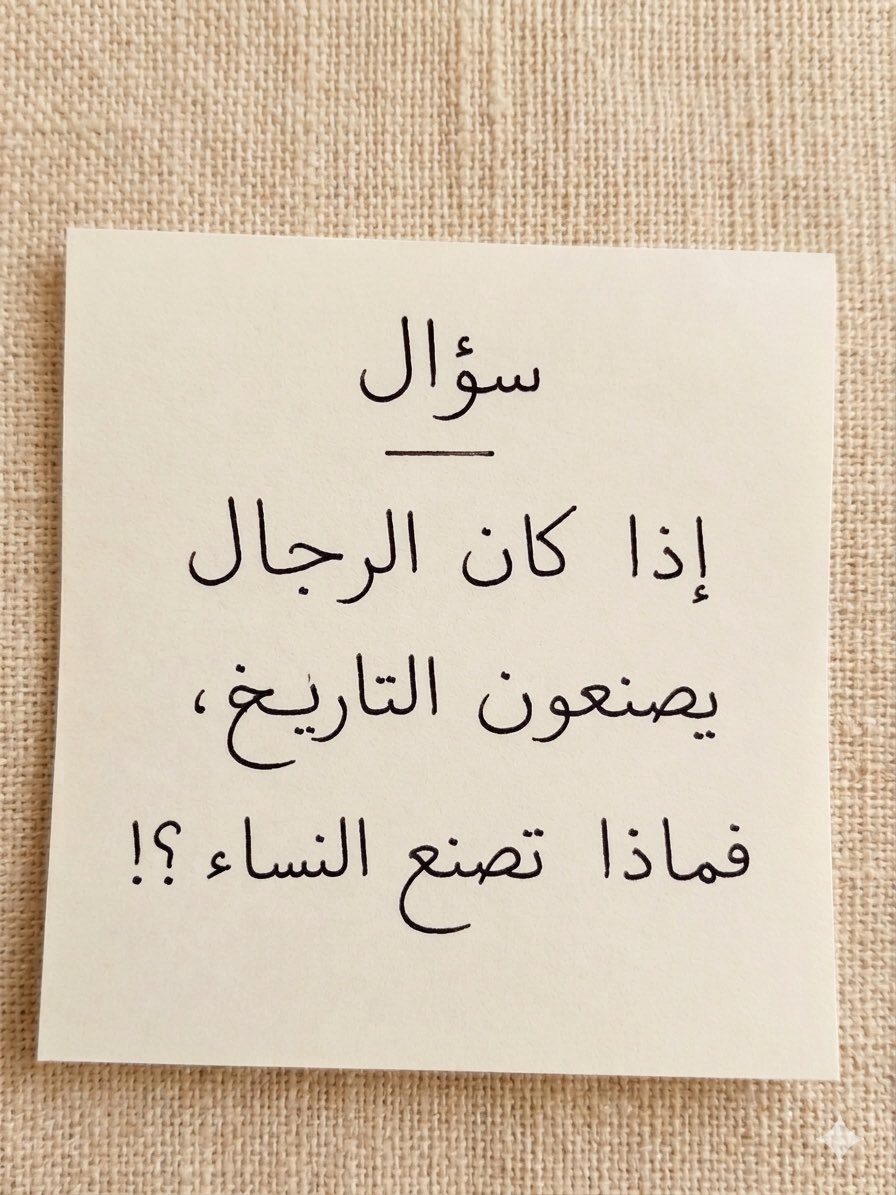 سؤال
إذا كان الرجال
يصنعون التاريخ،
فماذا تصنع النساء ؟!